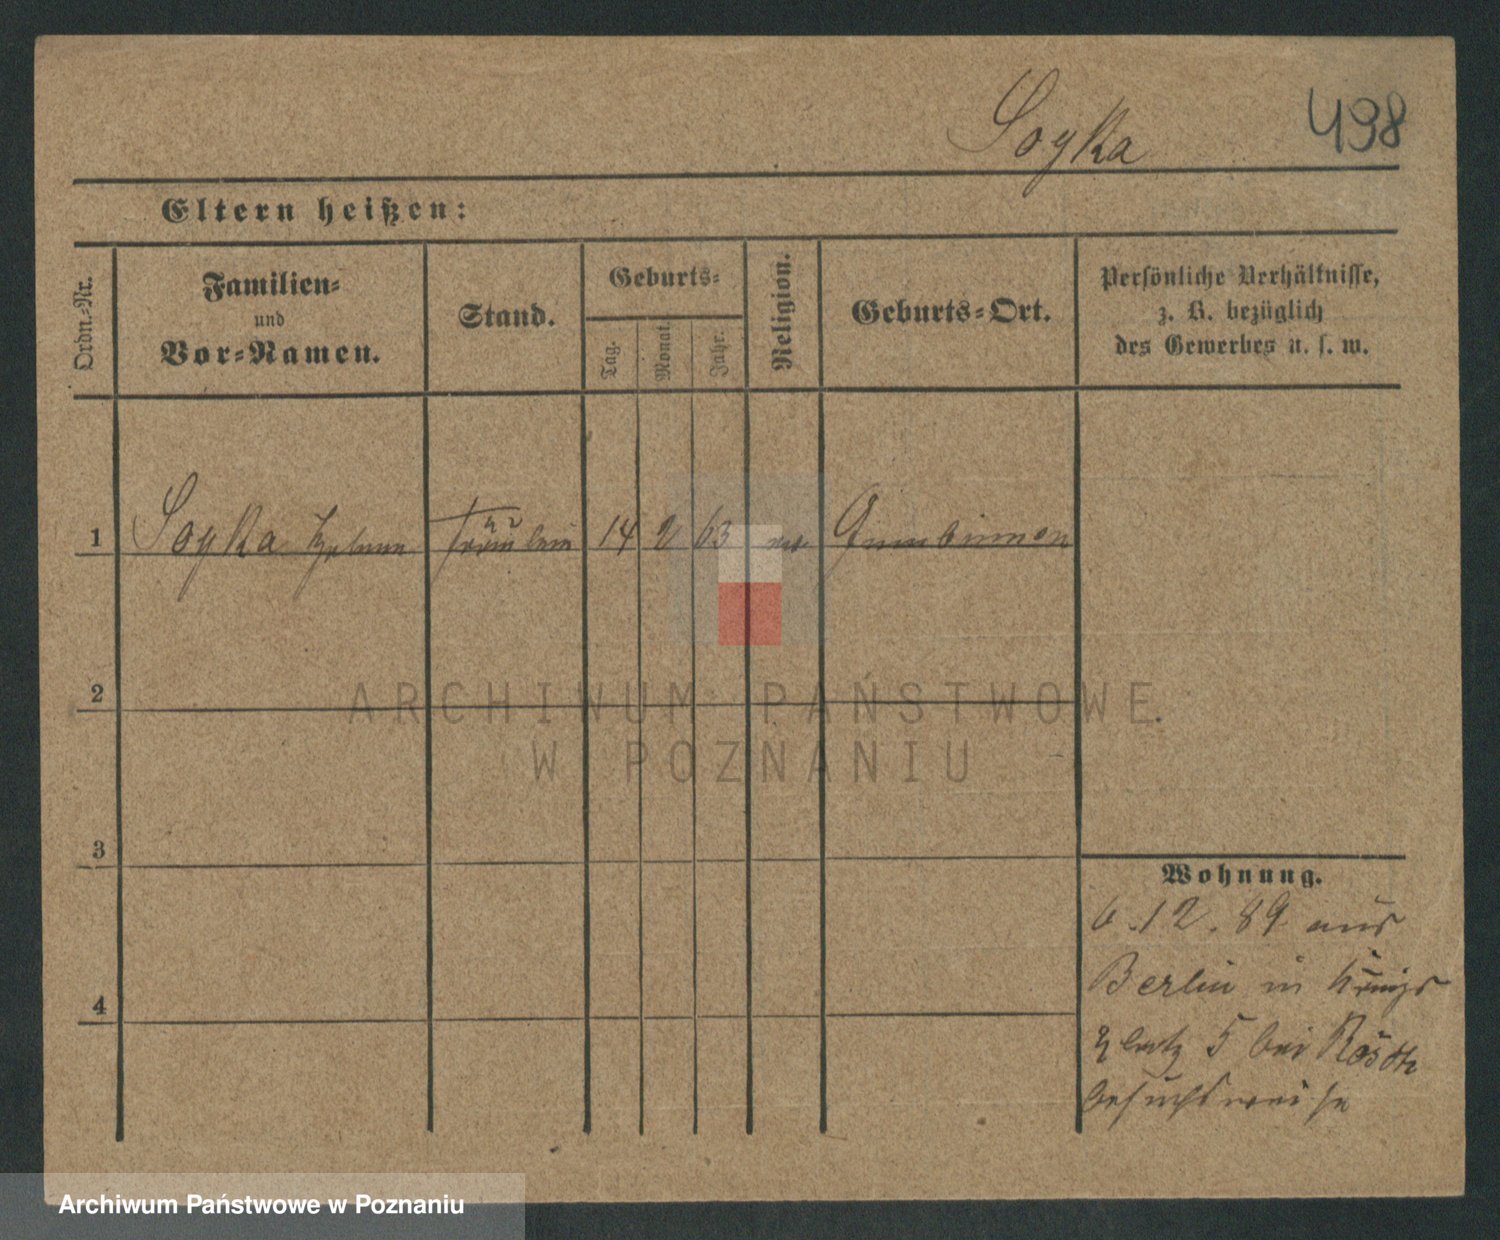 Soyka 498
Eltern heißen:
Ordn.-Nr.
Familien-
und
Vor-Namen.
Stand.
Geburts-
Tag.
Monat.
Jahr.
Religion.
Geburts-Ort.
Persönliche Verhältnisse,
z. B. bezüglich
des Gewerbes u. s. w.
1 Soyka Fräulein 14 2 63 Gumbinnen
2
ARCHIWUM PAŃSTWOWE
W POZNANIU
3
Wohnung.
6.12.89 aus
Berlin in Königs
platz 5 bei
besuchsweise
4
Archiwum Państwowe w Poznaniu